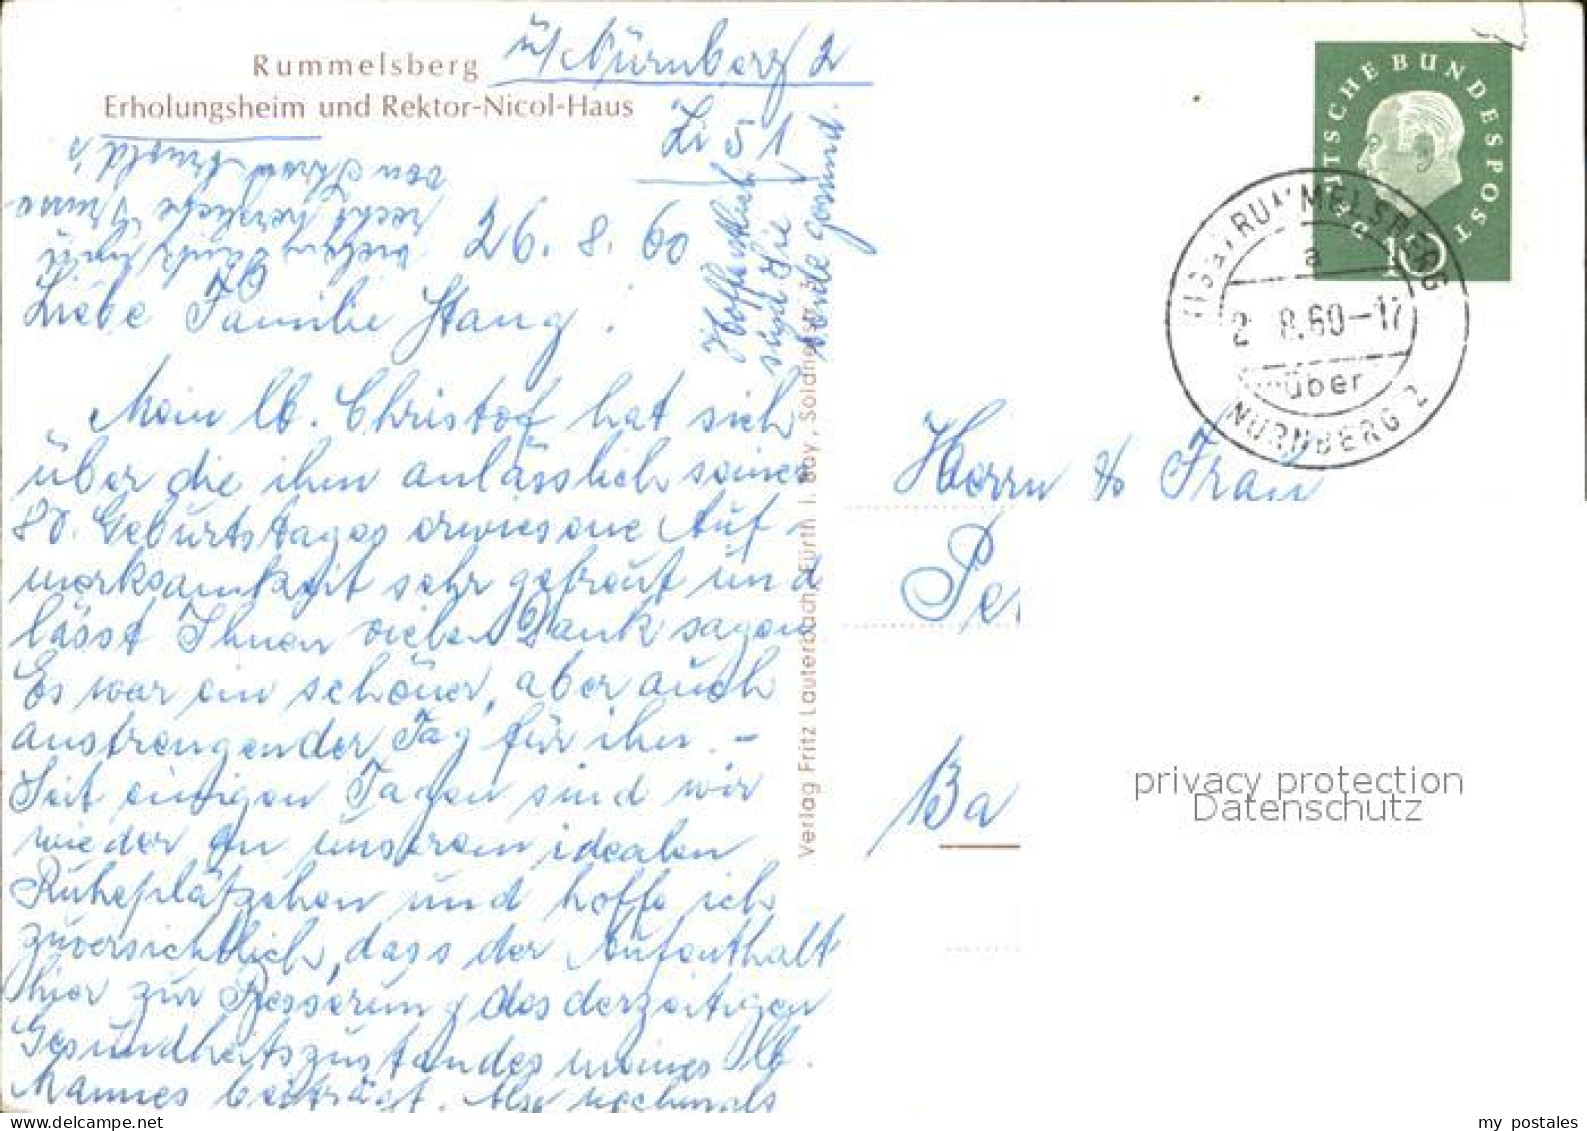 Rummelsberg ü/ Nürnberg 2
Erholungsheim und Rektor-Nicol-Haus
Zi 51
26. 8. 60
Liebe Familie Stang!
Mein lb. Christof hat sich
über die ihm anlässlich seines
80. Geburtstages erwiesene Auf-
merksamkeit sehr gefreut und
lässt Ihnen vielen Dank sagen.
Es war ein schöner, aber auch
anstrengender Tag für ihn. -
Seit einigen Tagen sind wir
wieder an unserem idealen
Ruheplätzchen und hoffe ich
zuversichtlich, dass der Aufenthalt
hier zur Besserung des derzeitigen
Gesundheitszustandes meines lb.
Mannes beiträgt. Also nochmals
vielen Dank und
recht herzliche Grüsse
von Ihren Arnold's
Hoffentlich
sind Sie
beide gesund.
Verlag Fritz Lauterbach, Fürth i. Bay., Soldnerstr.
DEUTSCHE BUNDESPOST
10
RUMMELSBERG
a
2 8.60-17
über
NÜRNBERG 2
Herrn & Frau
Pe
Ba
privacy protection
Datenschutz
my postales